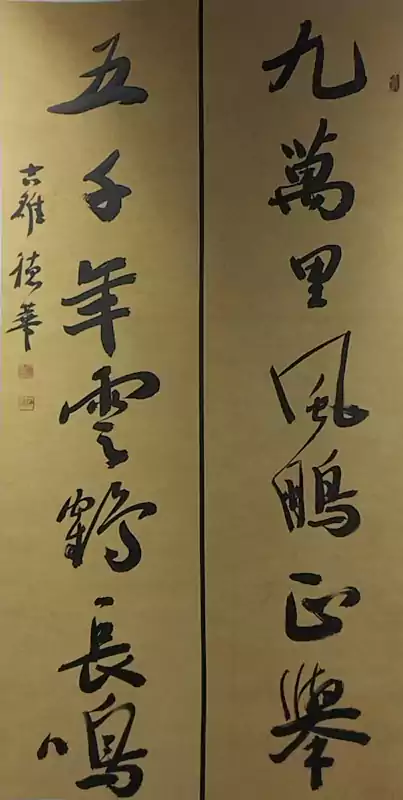 九萬里風鵬正舉
五千年雲鶴長鳴
古雒 德華